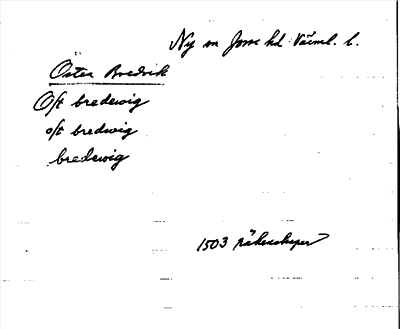 Ny sn Jösse hd Värml. l.
Öster Bredvik
Oft bredewig
oft bredwig
bredewig
1503 räkenskaper